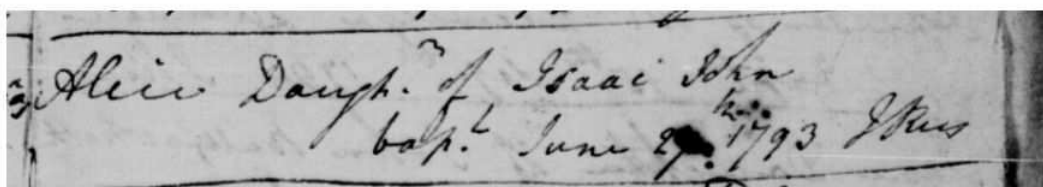 Alice Daugh.r of Isaac John
bap.t June 27th 1793 J Rees